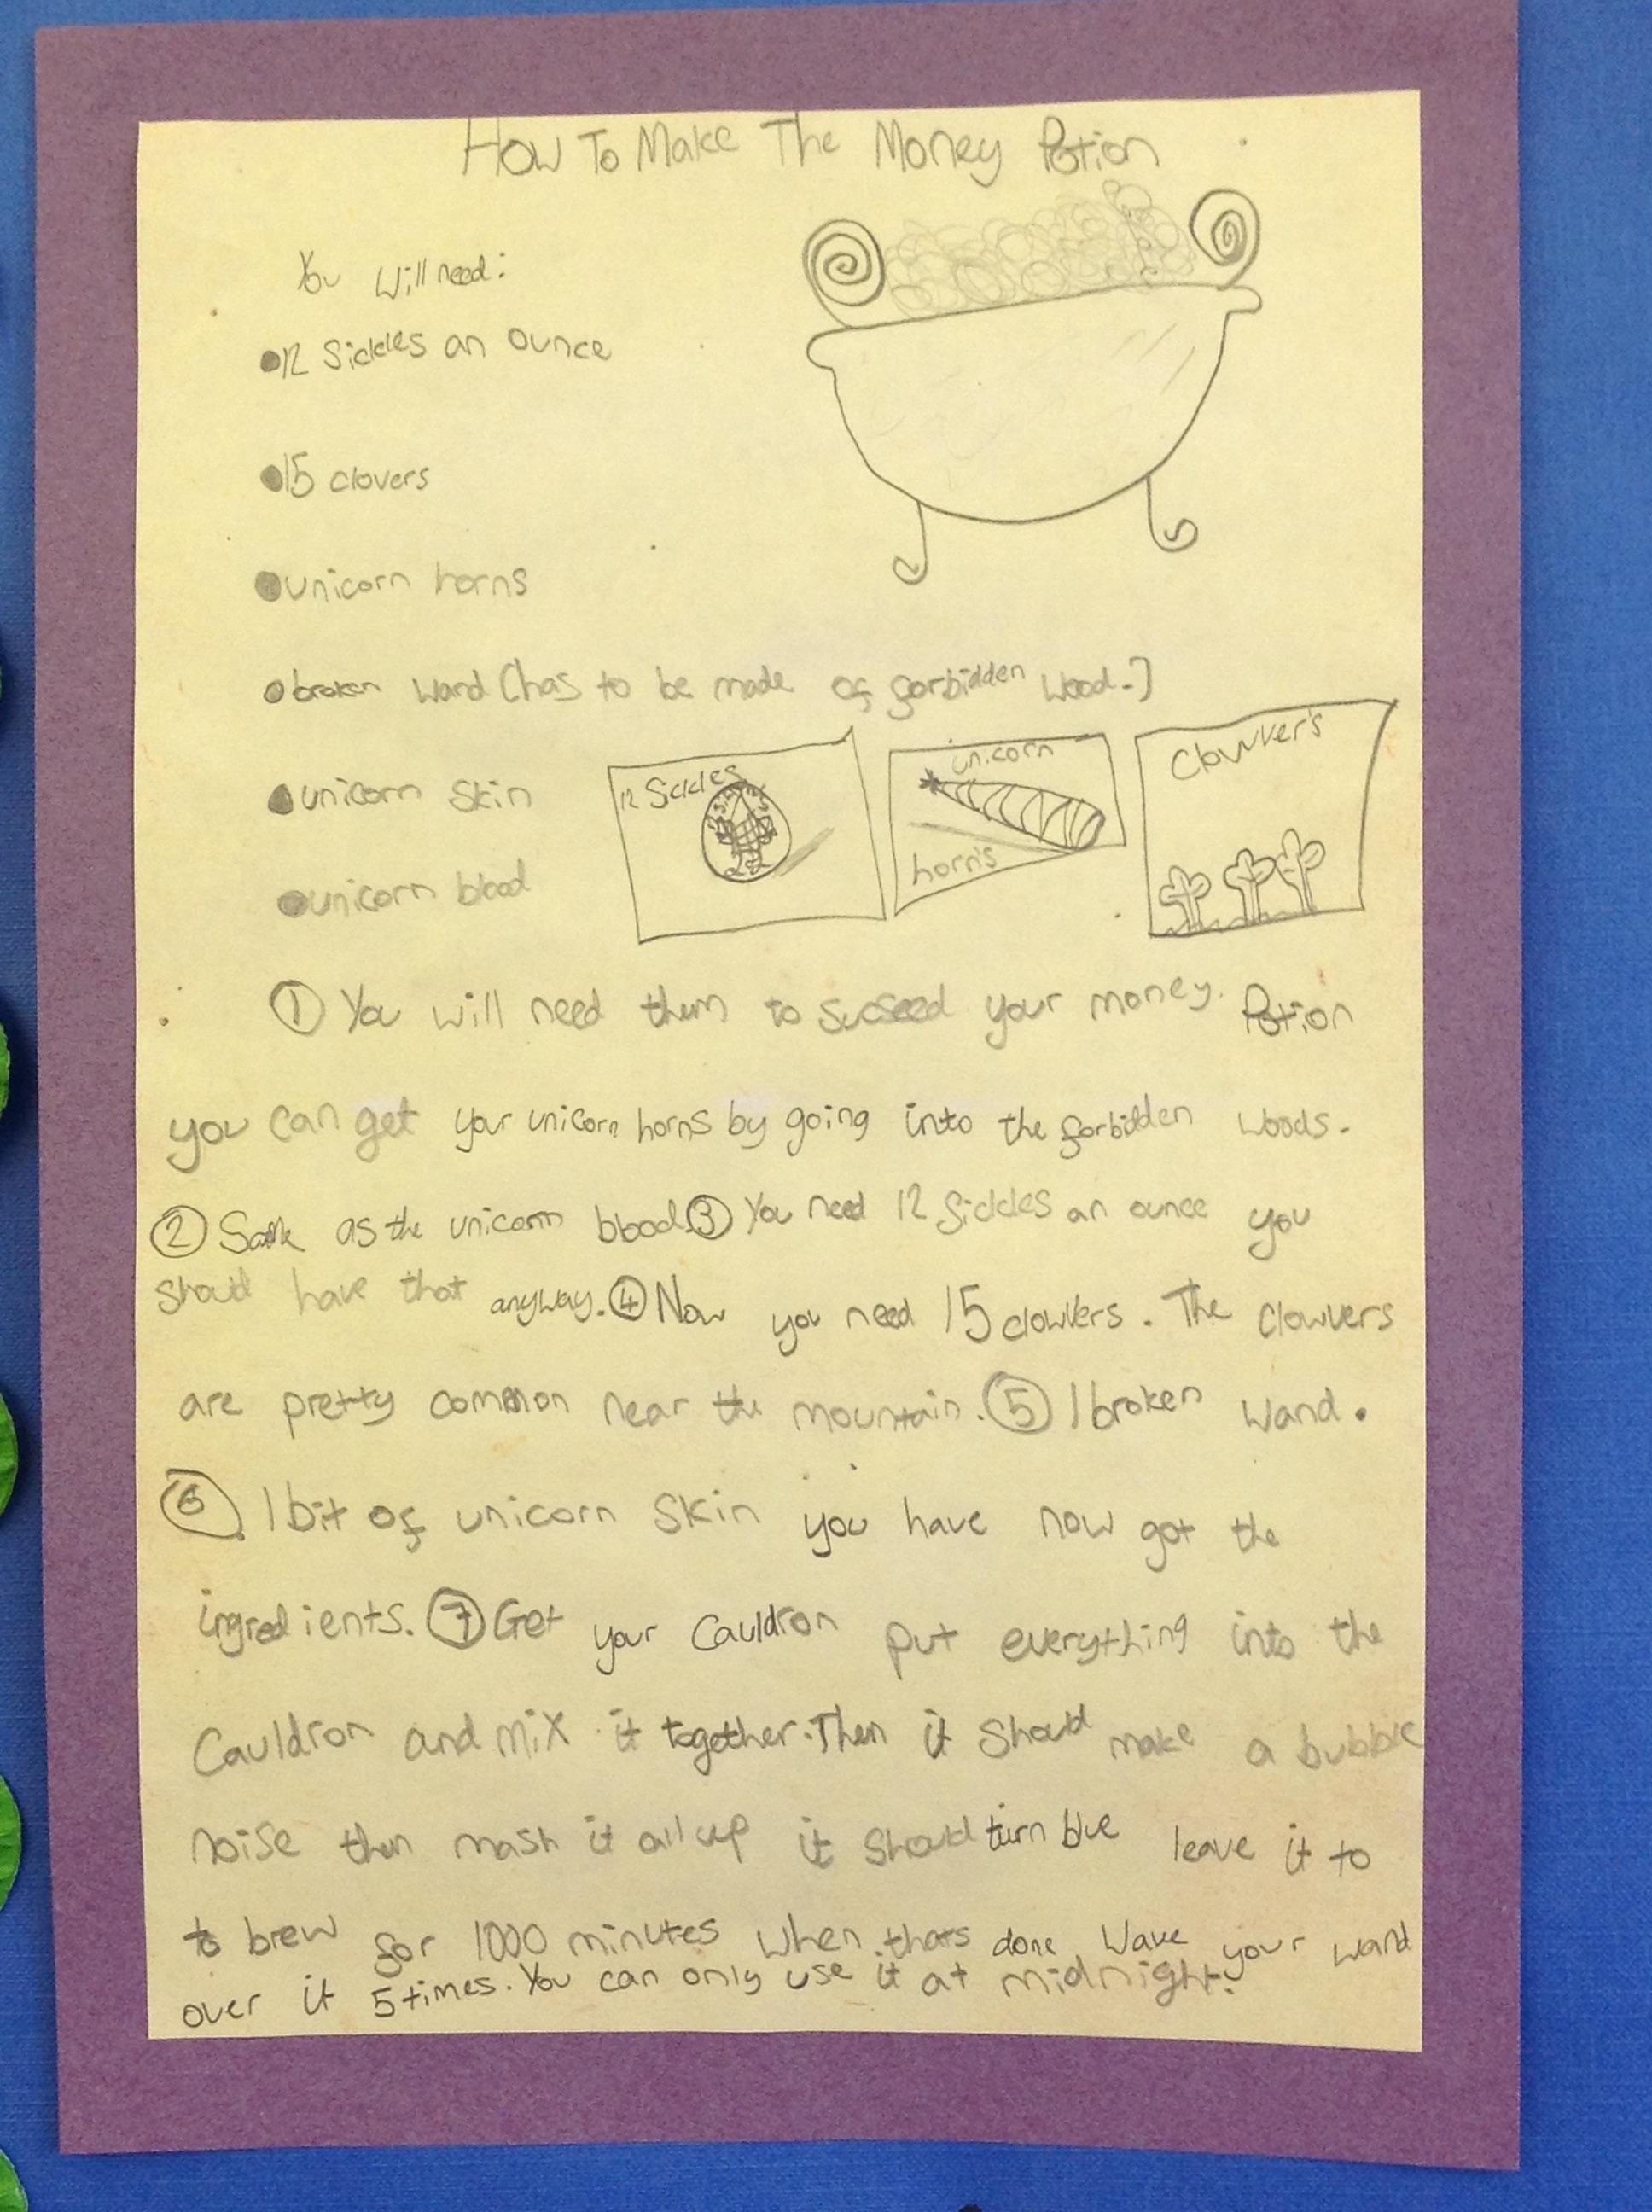 How To Make The Money Potion
You will need:
•12 Sickles an ounce
•15 clovers
•unicorn horns
•broken wand (has to be made of forbidden wood.)
•unicorn skin
•unicorn blood
12 Sickles
unicorn
horn's
Clowver's
① You will need them to sucseed your money. Potion
you can get your unicorn horns by going into the forbidden woods.
② Same as the unicorn blood.③ You need 12 Sickles an ounce you
should have that anyway.④ Now you need 15 clowvers. The clowvers
are pretty common near the mountain.⑤ 1 broken wand.
⑥ 1 bit of unicorn skin you have now got the
ingredients.⑦ Get your cauldron put everything into the
Cauldron and mix it together. Then it should make a bubble
noise then mash it all up it should turn blue leave it to
to brew for 1000 minutes when thats done, wave your wand
over it 5 times. You can only use it at midnight.